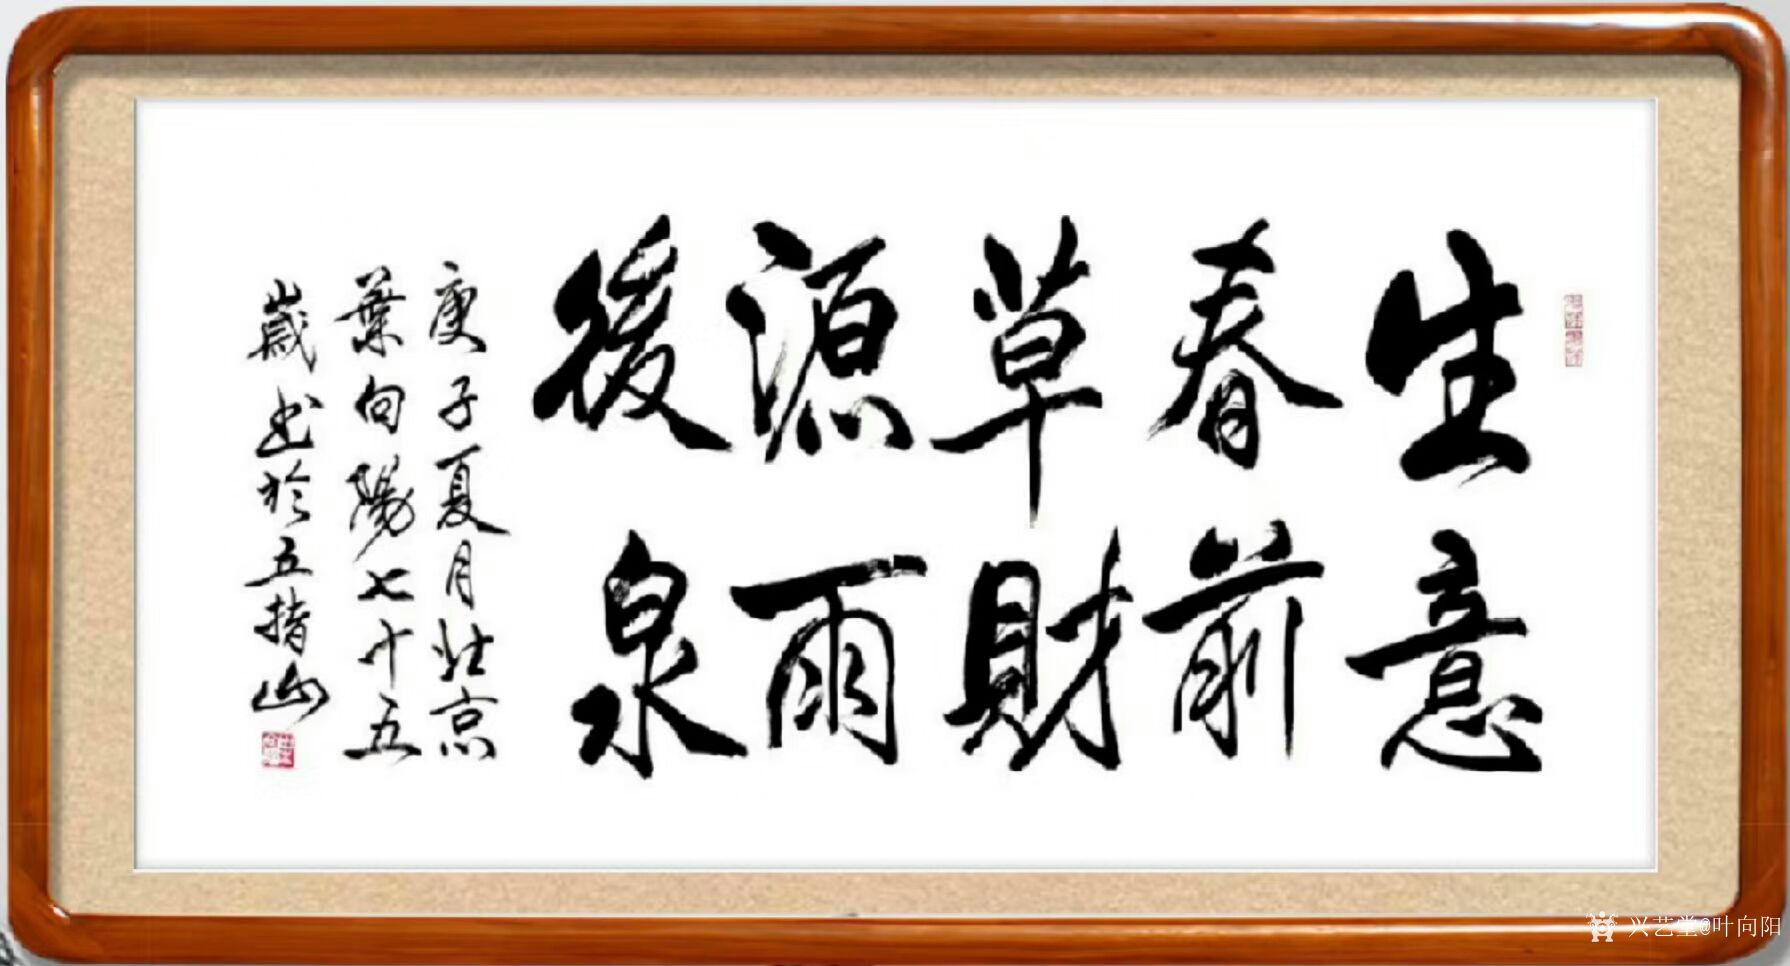 生意
春前
草財
源雨
後泉
庚子夏月北京
葉向陽七十五
歲书於五指山
兴艺堂@叶向阳